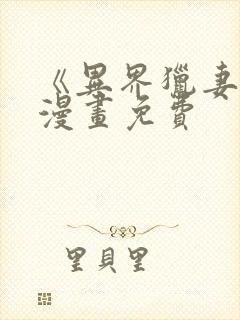 《異界獵妻
漫畫免費
里貝里